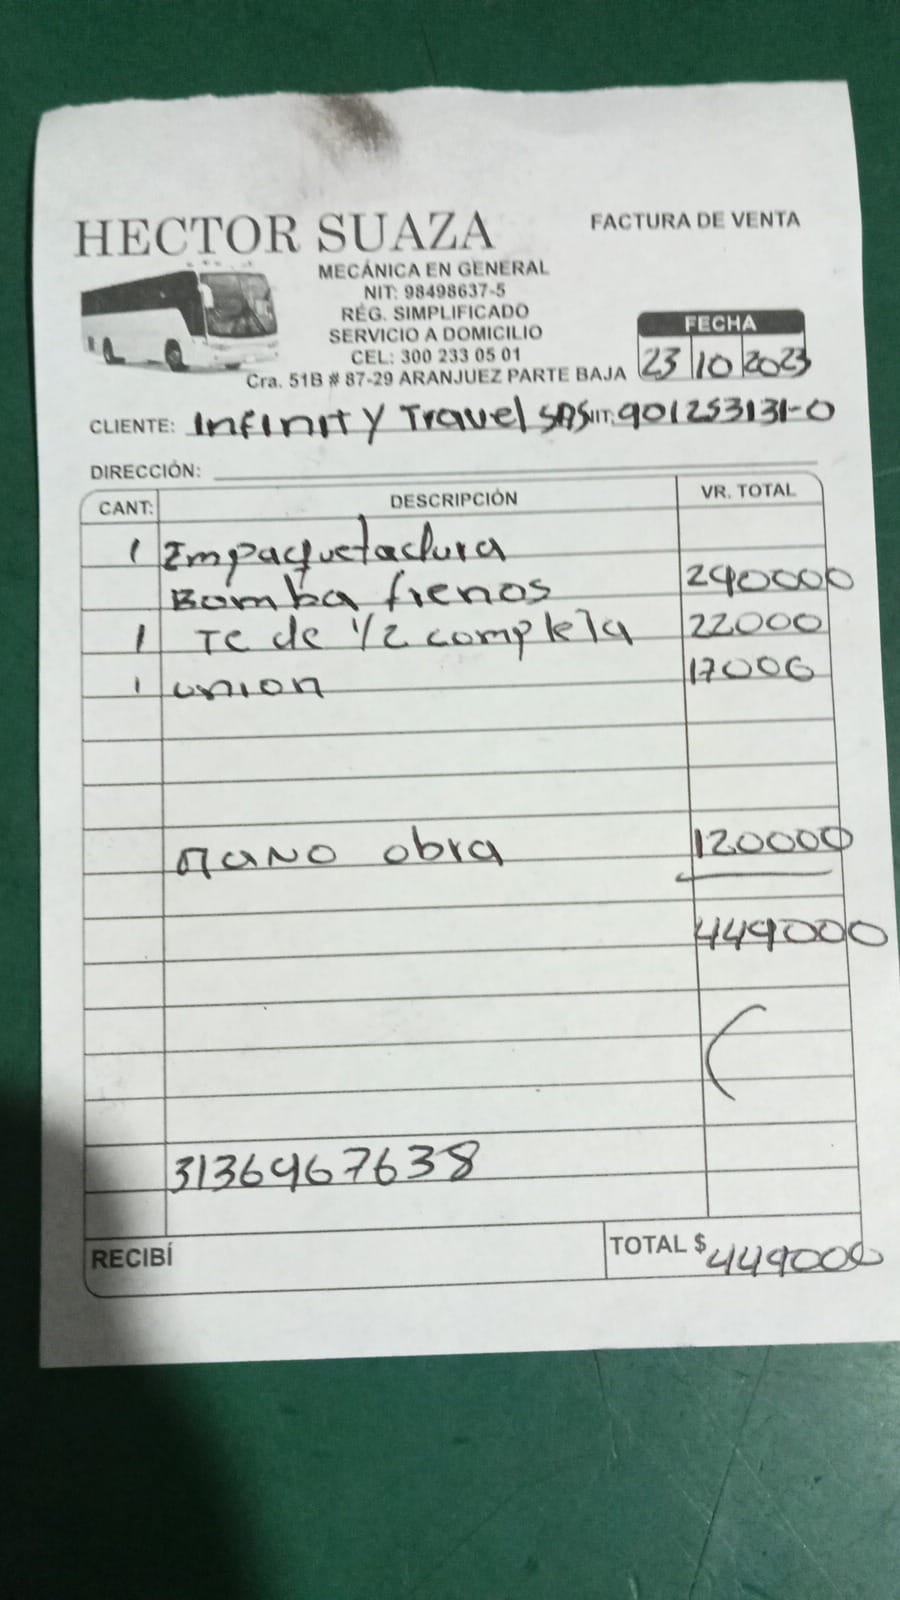 HECTOR SUAZA
FACTURA DE VENTA
MECÁNICA EN GENERAL
NIT: 98498637-5
RÉG. SIMPLIFICADO
SERVICIO A DOMICILIO
CEL: 300 233 05 01
Cra. 51B # 87-29 ARANJUEZ PARTE BAJA
FECHA
23 10 2023
CLIENTE: Infinity Travel SAS NIT: 901253131-0
DIRECCIÓN:
CANT: DESCRIPCIÓN VR. TOTAL
1 Empaquetadura
Bomba frenos 290000
1 Te de 1/2 completa 22000
1 union 17000
mano obra 120000
449000
3136967638
RECIBÍ TOTAL $ 449000